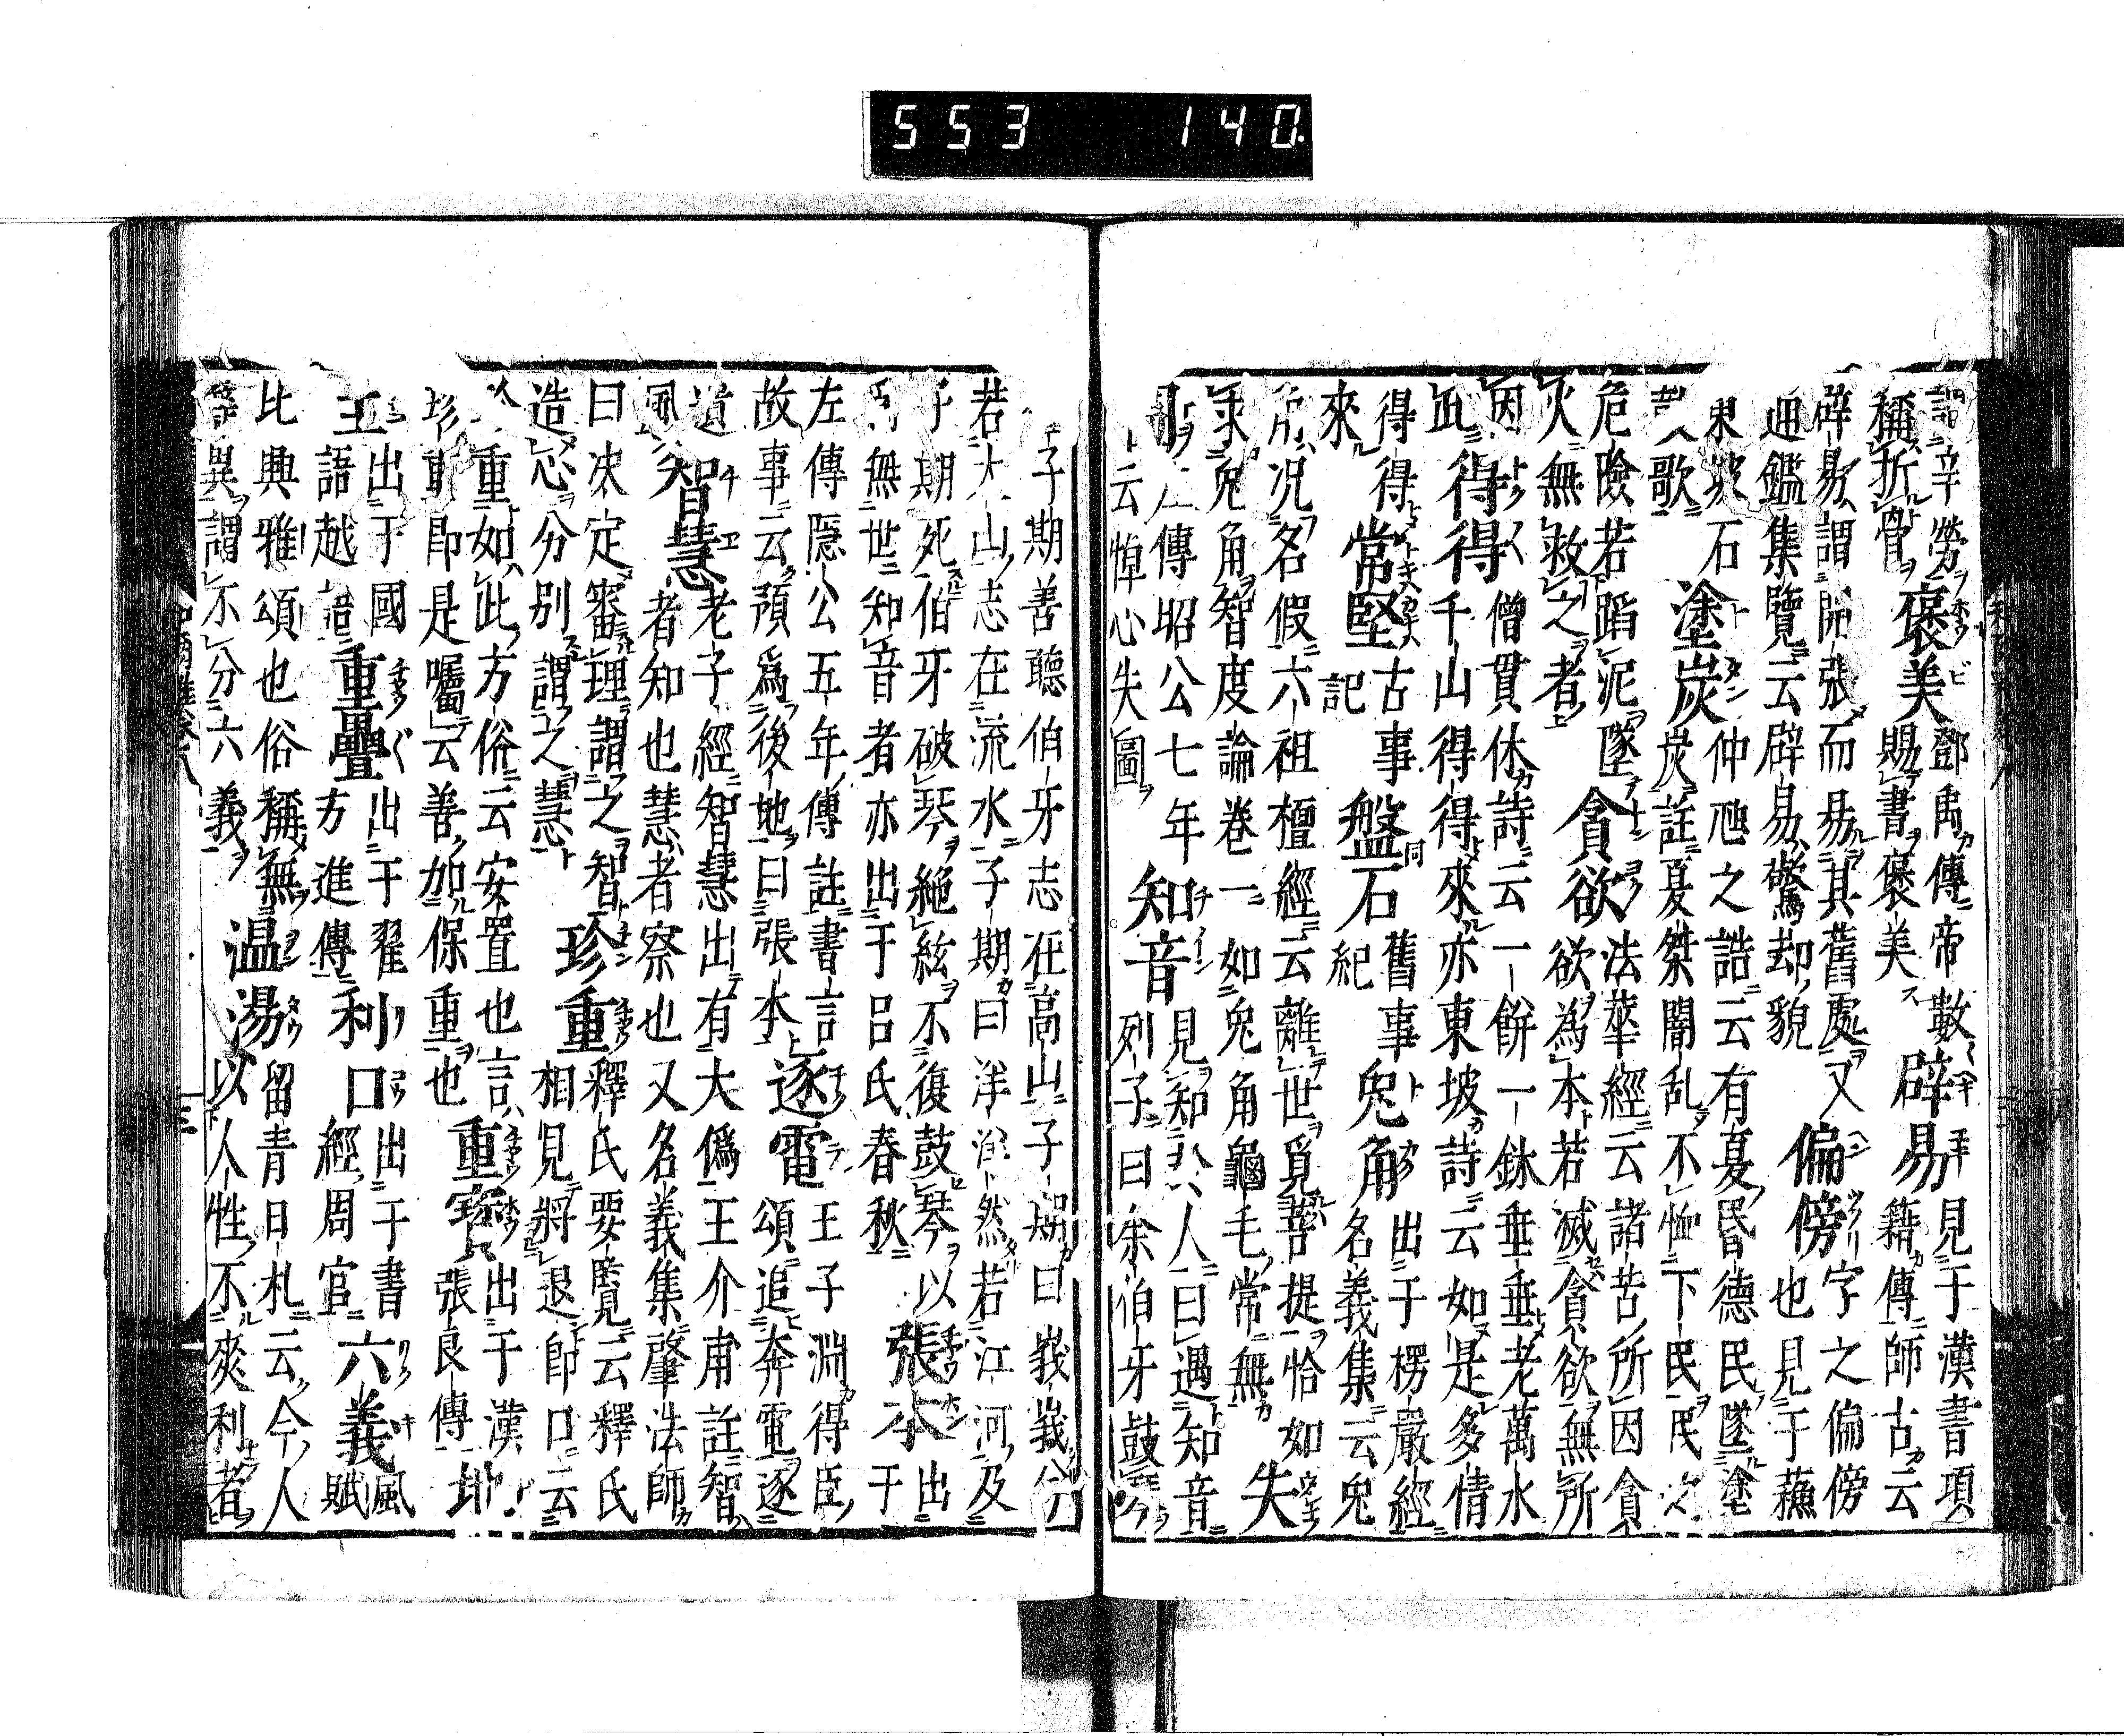 553 140.
謂辛勞 褒美 鄧禹傳帝數 辟易 見于漢書項
稱折骨 賜書褒美 籍傳師古云
辟易謂開張而易其舊處又 偏傍 字之偏傍
通鑑集覽云辟易驚却貌 也見于蘓
東坡石 塗炭 仲虺之誥云有夏昏德民墜塗
歌 炭註夏桀闇乱不恤下民民之
危險若蹈泥墜 貪欲 法華經云諸苦所因貪
火無救之者 欲為本若滅貪欲無所
因 得得 僧貫休詩云一餅一鉢垂垂老萬水
千山得得來亦東坡詩云如是多情
得得 常堅 古事 盤石 舊事 兎角 出于楞嚴經
來 記 紀 名義集云兎
况名假六祖檀經云離世覓菩提恰如 失
求兎角智度論卷一如兎角龜毛常無
左傳昭公七年 知音 見知於人曰遇知音
云悼心失圖 列子曰余伯牙鼓琴
子期善聽伯牙志在高山子期曰峩峩兮
若太山志在流水子期曰洋洋然若江河及
子期死伯牙破琴絶絃不復鼓琴以 張本 出
無世知音者亦出于呂氏春秋 于
左傳隱公五年傳註書言 逐電 王子淵得臣
故事云預為後地曰張本 頌追奔電逐
遺 智慧 老子經智慧出有大偽王介甫註智
風 者知也慧者察也又名義集肇法師
曰决定審理謂之智 珍重 釋氏要覽云釋氏
造心分別謂之慧 相見將退即口云
重如此方俗云安置也言 重寳 出于漢
珍重即是囑云善加保重也 張良傳
出于國 重疊 出于翟 利口 出于書 六義 風
語越語 方進傳 經周官 賦
比興雅頌也俗稱無 温湯 留青日札云今人
等異謂不分六義 以人性不爽利者